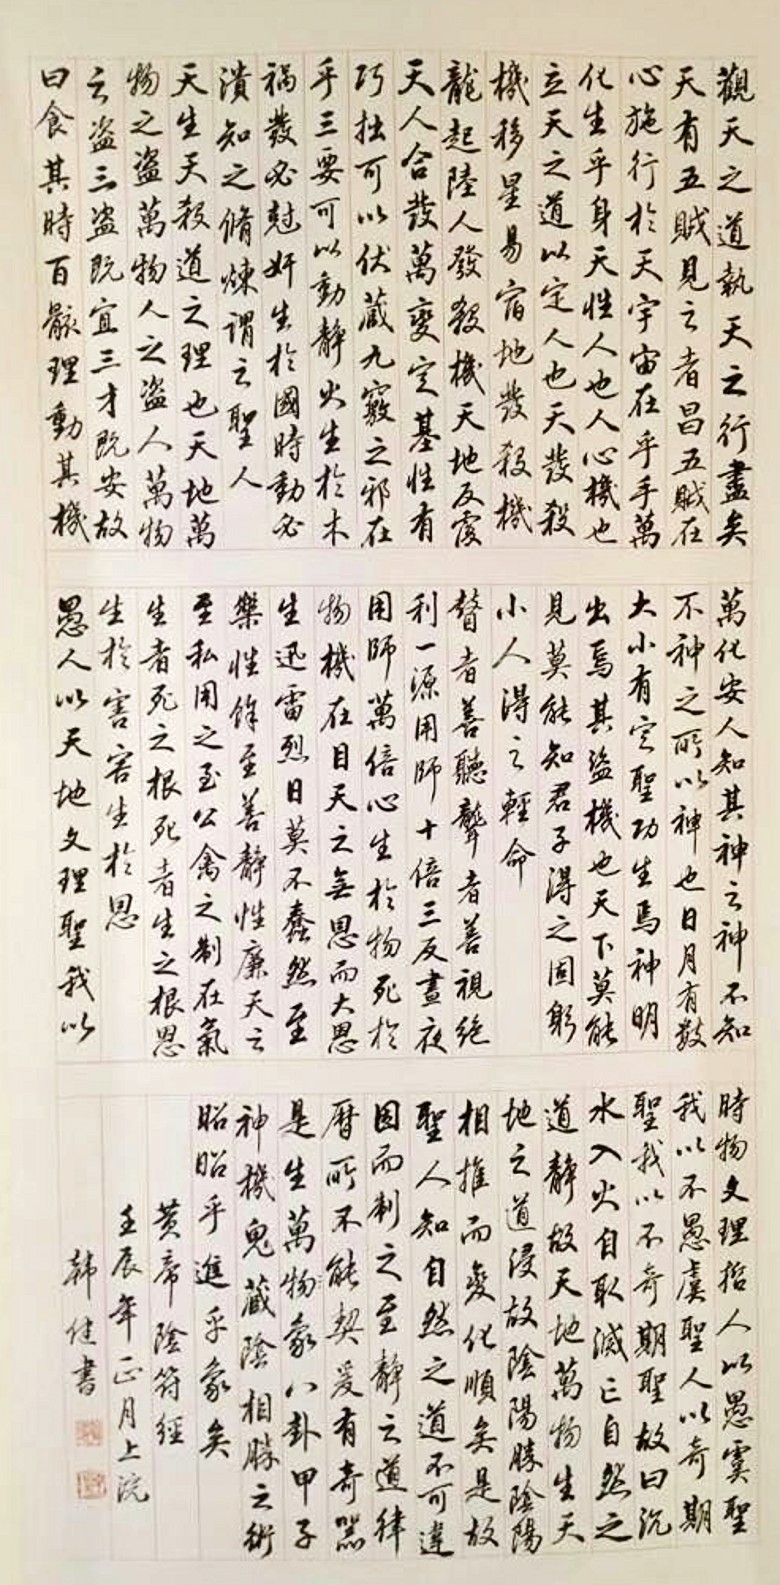 觀天之道執天之行盡矣
天有五賊見之者昌五賊在
心施行於天宇宙在乎手萬
化生乎身天性人也人心機也
立天之道以定人也天發殺
機移星易宿地發殺機
龍起陸人發殺機天地反覆
天人合發萬變定基性有
巧拙可以伏藏九竅之邪在
乎三要可以動靜火生於木
禍發必尅奸生於國時動必
潰知之脩煉謂之聖人
天生天殺道之理也天地萬
物之盜萬物人之盜人萬物
之盜三盜既宜三才既安故
曰食其時百骸理動其機
萬化安人知其神之神不知
不神之所以神也日月有數
大小有定聖功生焉神明
出焉其盜機也天下莫能
見莫能知君子得之固躬
小人得之輕命
瞽者善聽聾者善視絕
利一源用師十倍三反晝夜
用師萬倍心生於物死於
物機在目天之無恩而大恩
生迅雷烈日莫不蠢然至
樂性餘至善靜性廉天之
至私用之至公禽之制在氣
生者死之根死者生之根恩
生於害害生於恩
愚人以天地文理聖我以
時物文理哲人以愚虞聖
我以不愚虞聖人以奇期
聖我以不奇期聖故曰沉
水入火自取滅亡自然之
道靜故天地萬物生天
地之道浸故陰陽勝陰陽
相推而變化順矣是故
聖人知自然之道不可違
因而制之至靜之道律
曆所不能契爰有奇器
是生萬物象八卦甲子
神機鬼藏陰相勝之術
昭昭乎進乎象矣
黄帝陰符經
壬辰年正月上浣
韩佳書